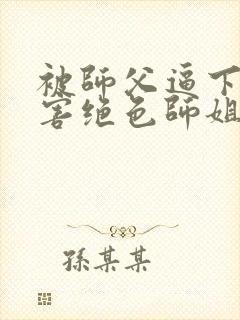 被師父逼下
害绝色師姐
孫某某